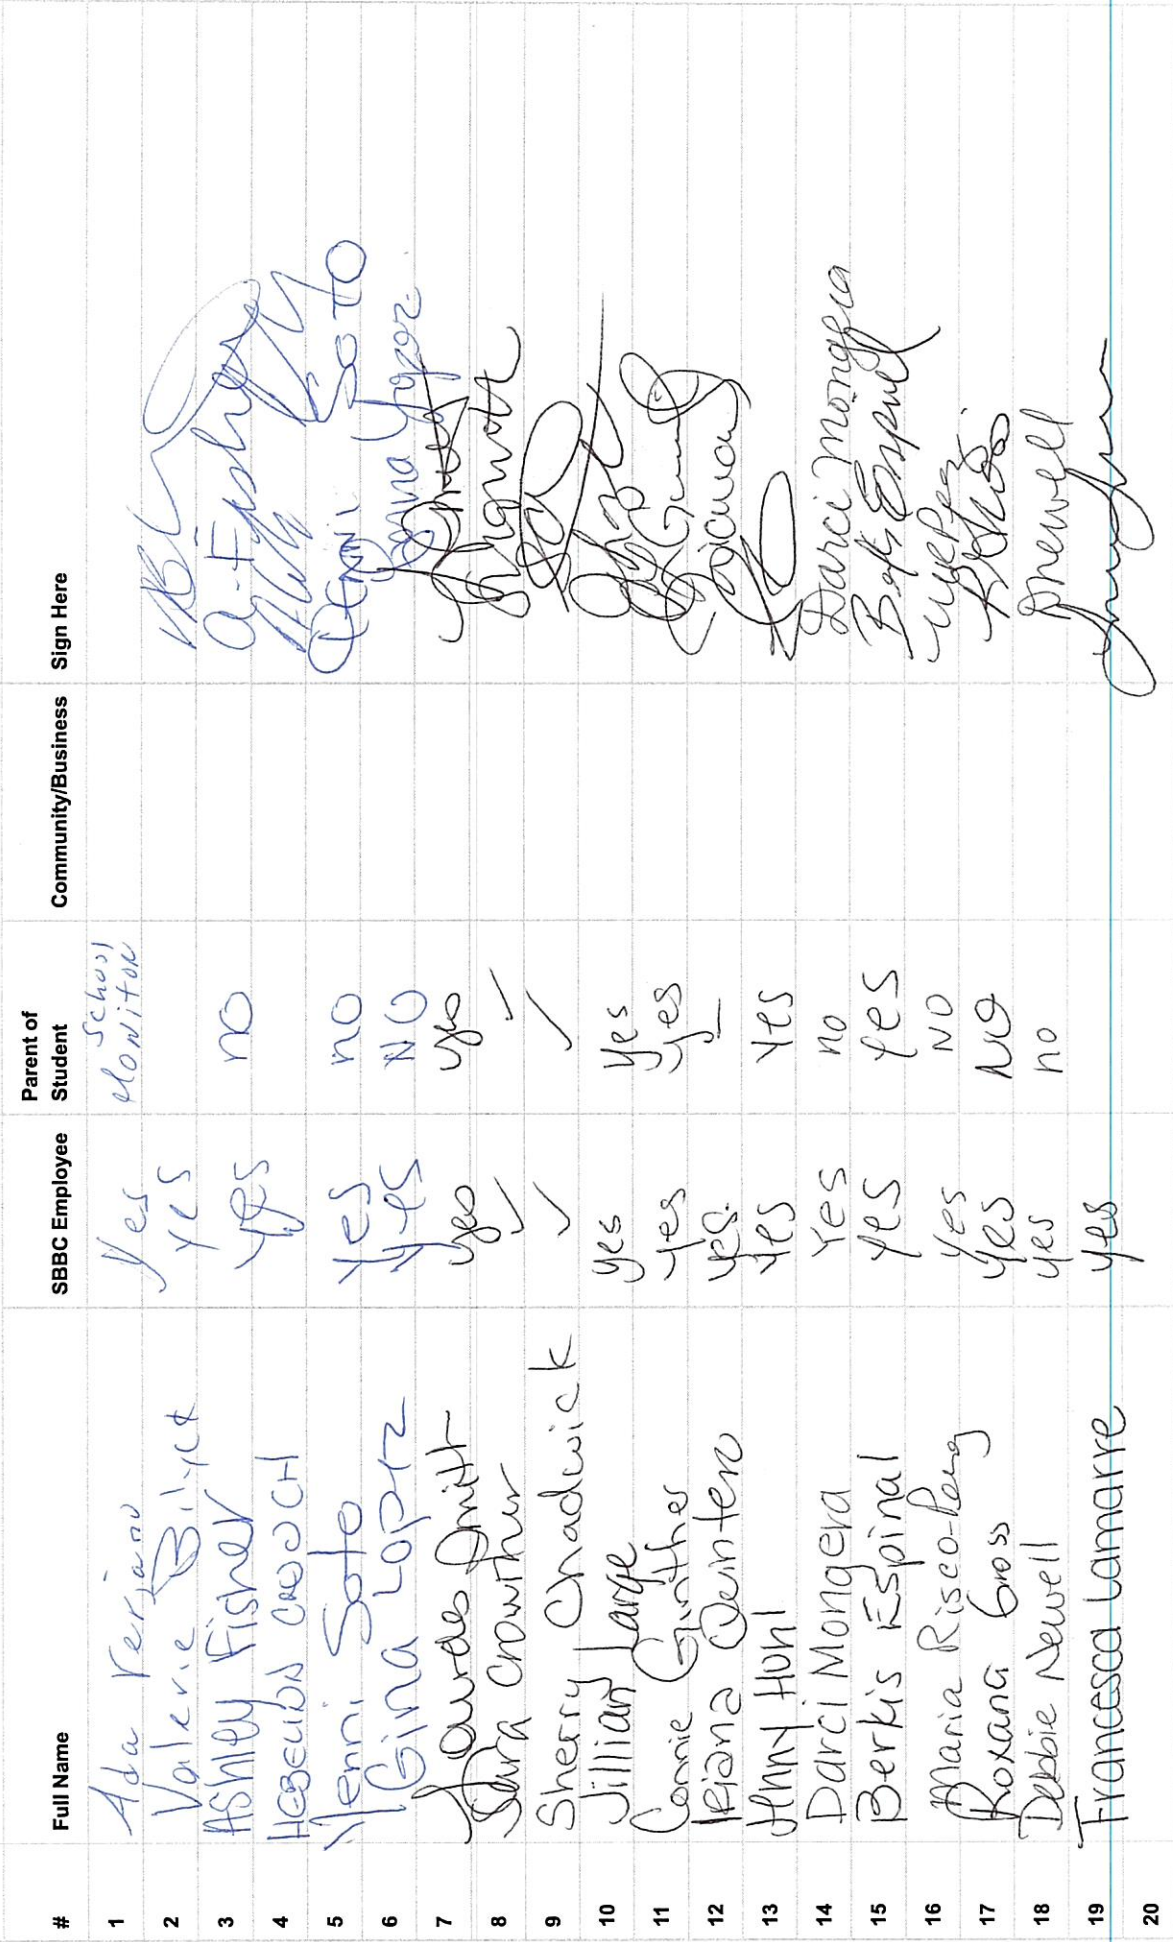 # Full Name SBBC Employee Parent of Student Community/Business Sign Here
1 Ada Verjano Yes School Monitor
2 Valerie yes
3 Ashley Fisher yes no a-Fisher
4 CROUCH
5 Yenni Soto yes no Yenni Soto
6 Gina Lopez yes NO Gina Lopez
7 Lourdes Smith yes yes
8 Sara Crowther ✓ ✓
9 Sherry Chadwick ✓ ✓
10 Jillian Large yes yes
11 Connie Ginther yes yes
12 Quintero yes. —
13 Jenny Huhl yes yes
14 Darci Mongera Yes no Darci Mongera
15 Berkis Espinal yes yes
16 Maria Risco-Perez yes NO
17 Roxana Gross yes NO
18 Debbie Newell yes no DNewell
19 Francesca Lamarre yes
20